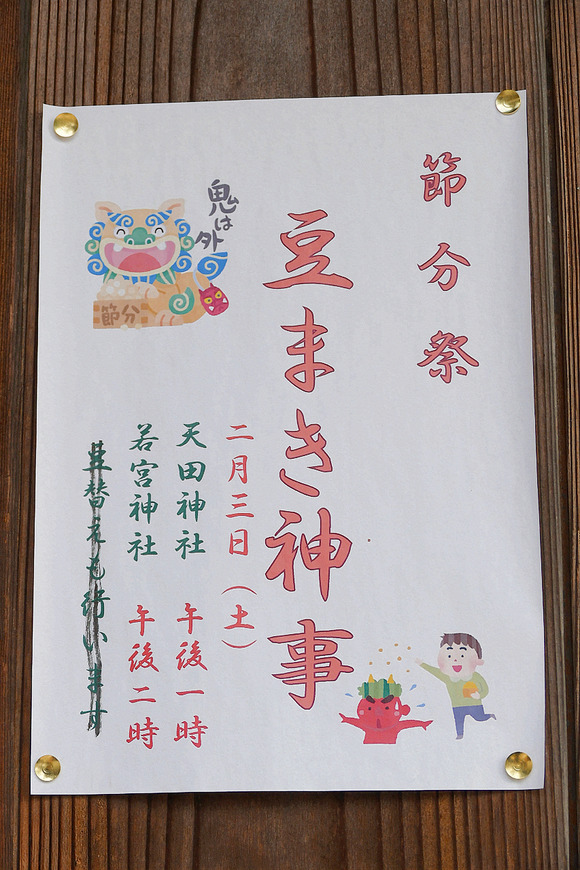 節分祭
豆まき神事
二月三日（土）
天田神社 午後一時
若宮神社 午後二時
豆替えも行います
鬼は外
節分